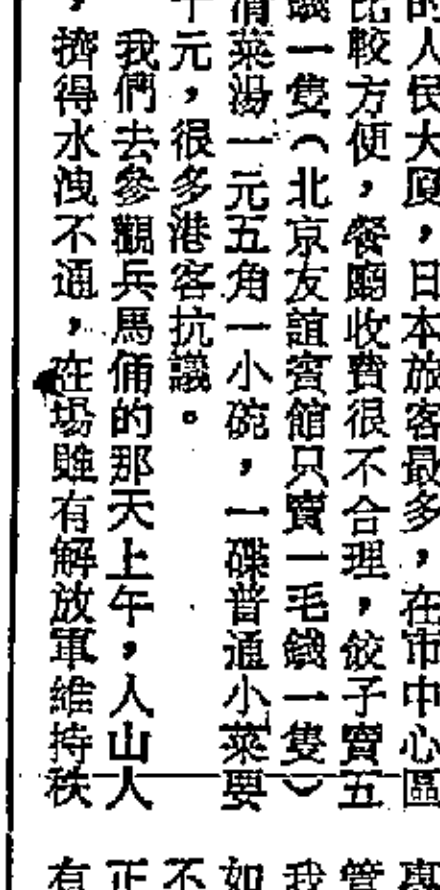 的人民大廈，日本旅客最多，在市中心區
比較方便，餐廳收費很不合理，餃子賣五
錢一隻（北京友誼賓館只賣一毛錢一隻）
清菜湯一元五角一小碗，一碟普通小菜要
元，很多港客抗議。
我們去參觀兵馬俑的那天上午，人山人
，擠得水洩不通，在場雖有解放軍維持秩
管
我
如
不
正
有